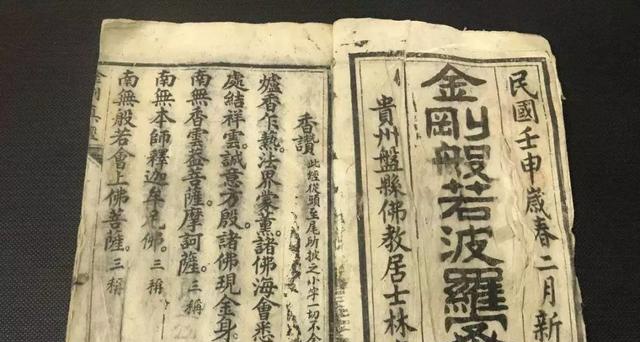 民國壬申歲春二月新
金剛般若波羅
貴州盤縣佛教居士林
香讚 此經從頭至尾所披之小字一切不念
爐香乍熱。法界蒙薰。諸佛海會悉
處結祥雲。誠意方殷。諸佛現金身。
南無香雲葢菩薩摩訶薩。三稱
南無本師釋迦牟尼佛。三稱
南無般若會上佛菩薩。三稱